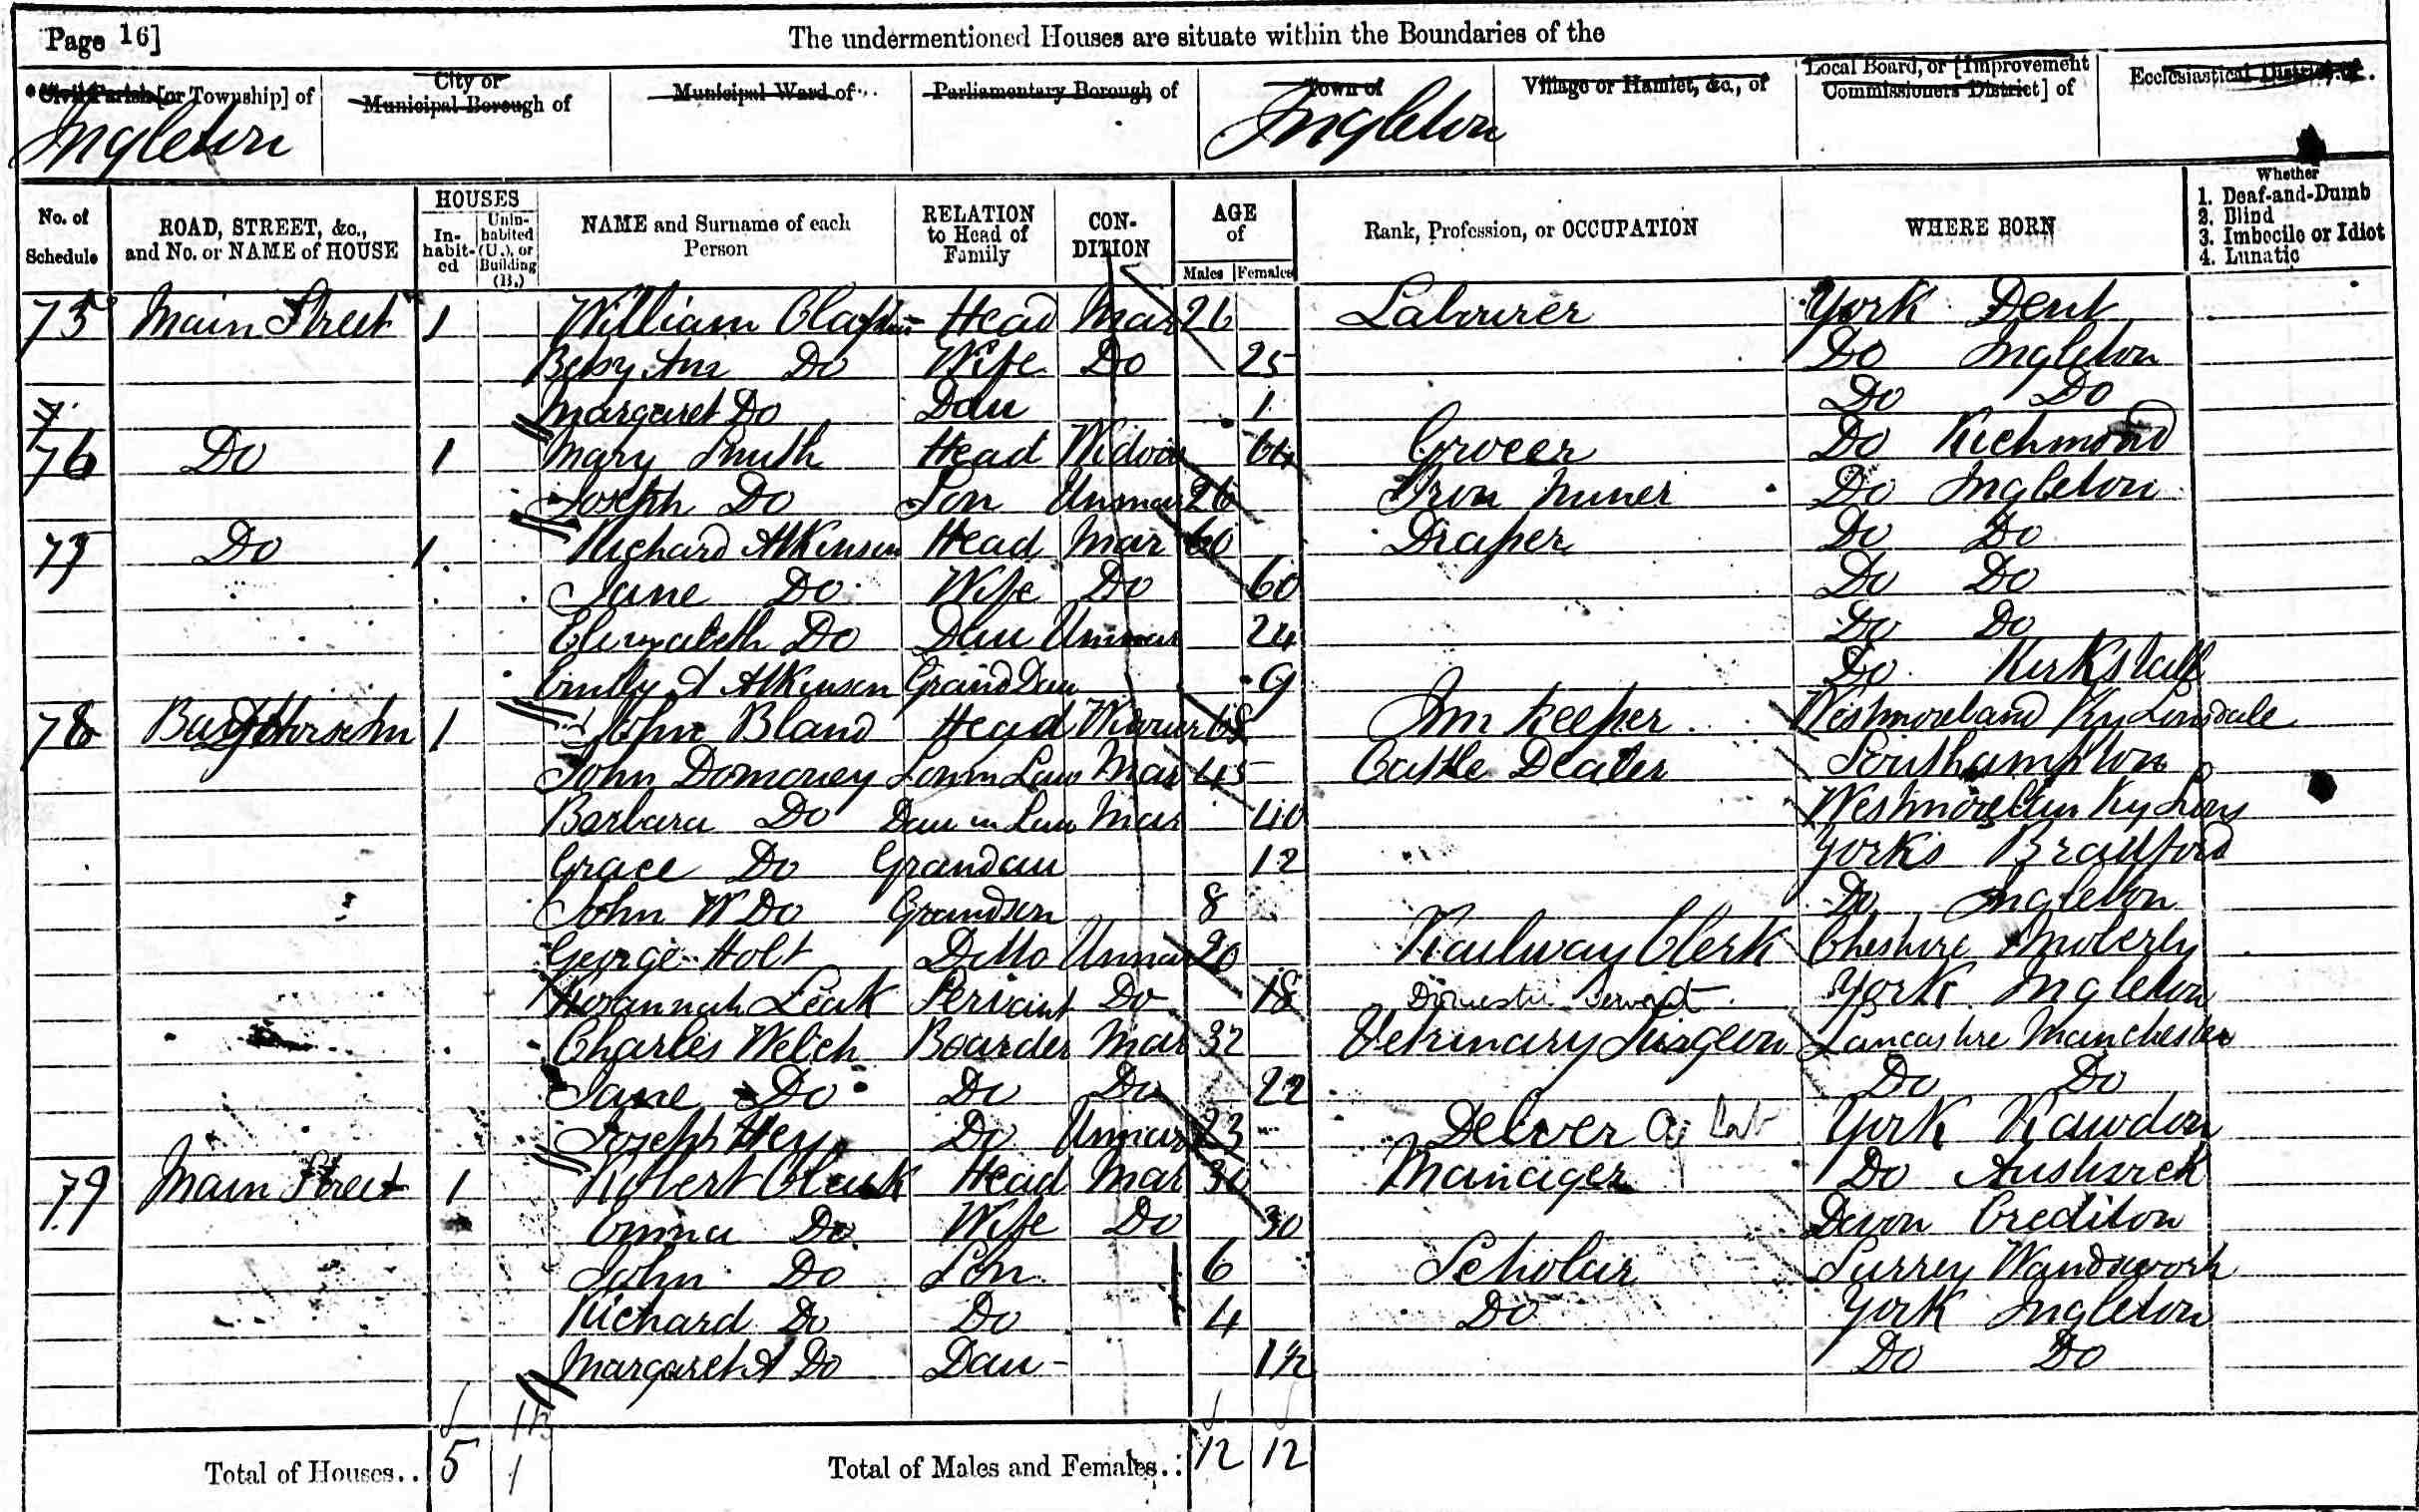 Page 16]
The undermentioned Houses are situate within the Boundaries of the
Civil Parish [or Township] of City or Municipal Borough of Municipal Ward of Parliamentary Borough of Town of Village or Hamlet, &c., of Local Board, or [Improvement Commissioners District] of Ecclesiastical District of
Ingleton Ingleton
No. of Schedule ROAD, STREET, &c., and No. or NAME of HOUSE HOUSES Inhabited Uninhabited (U.), or Building (B.) NAME and Surname of each Person RELATION to Head of Family CONDITION AGE of Males Females Rank, Profession, or OCCUPATION WHERE BORN Whether 1. Deaf-and-Dumb 2. Blind 3. Imbecile or Idiot 4. Lunatic
75 Main Street 1 William Head Mar 26 Labourer York Dent
Betsy Ann Do Wife Do 25 Do Ingleton
Margaret Do Dau 1 Do Do
76 Do 1 Mary Smith Head Widow 64 Grocer Do Richmond
Joseph Do Son Unmar 26 Iron Miner Do Ingleton
77 Do 1 Richard Atkinson Head Mar 60 Draper Do Do
Jane Do Wife Do 60 Do Do
Elizabeth Do Dau Unmar 24 Do Do
Emily A Atkinson Grand Dau 9 Do Kirkstall
78 Bay Horse Inn 1 John Bland Head Widower 68 Inn Keeper Westmoreland Ky Lonsdale
John Domoney Son in Law Mar 45 Cattle Dealer Southampton
Barbara Do Dau in Law Mar 40 Westmorelan Ky Lons
Grace Do Grandau 12 Yorks Bradford
John W Do Grandson 8 Do Ingleton
George Holt Ditto Unmar 20 Railway Clerk Cheshire Moberly
Hosannah Leak Servant Do 18 Domestic Servant York Ingleton
Charles Welch Boarder Mar 32 Vetrinary Surgeon Lancashire Manchester
Jane Do Do Do 22 Do Do
Joseph Hey Do Unmar 23 Delver York Rawdon
79 Main Street 1 Robert Clark Head Mar 30 Manager Do Austwick
Emma Do Wife Do 30 Devon Crediton
John Do Son 6 Scholar Surrey Wandsworth
Richard Do Do 4 Do York Ingleton
Margaret A Do Dau 1½ Do Do
Total of Houses.. 5 1 Total of Males and Females.. 12 12